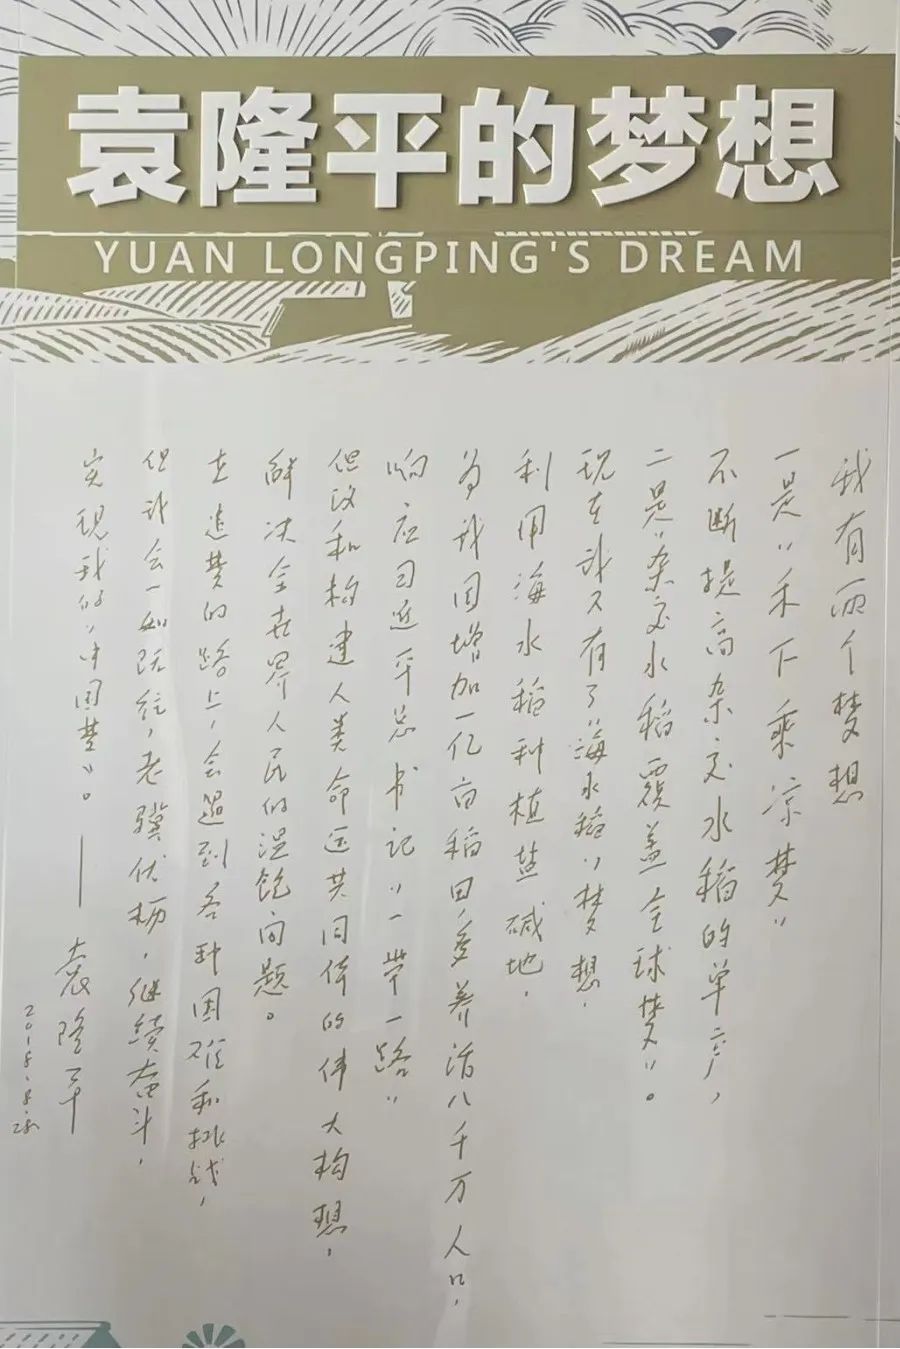 袁隆平的梦想
YUAN LONGPING'S DREAM
我有两个梦想
一是“禾下乘凉梦”
不断提高杂交水稻的单产，
二是“杂交水稻覆盖全球梦”。
现在我又有了“海水稻”梦想，
利用海水稻种植盐碱地，
为我国增加一亿亩稻田，多养活八千万人口，
响应习近平总书记“一带一路”
倡议和构建人类命运共同体的伟大构想，
解决全世界人民的温饱问题。
在追梦的路上，会遇到各种困难和挑战，
但我会一如既往，老骥伏枥，继续奋斗，
实现我的“中国梦”。——袁隆平
2018.8.28